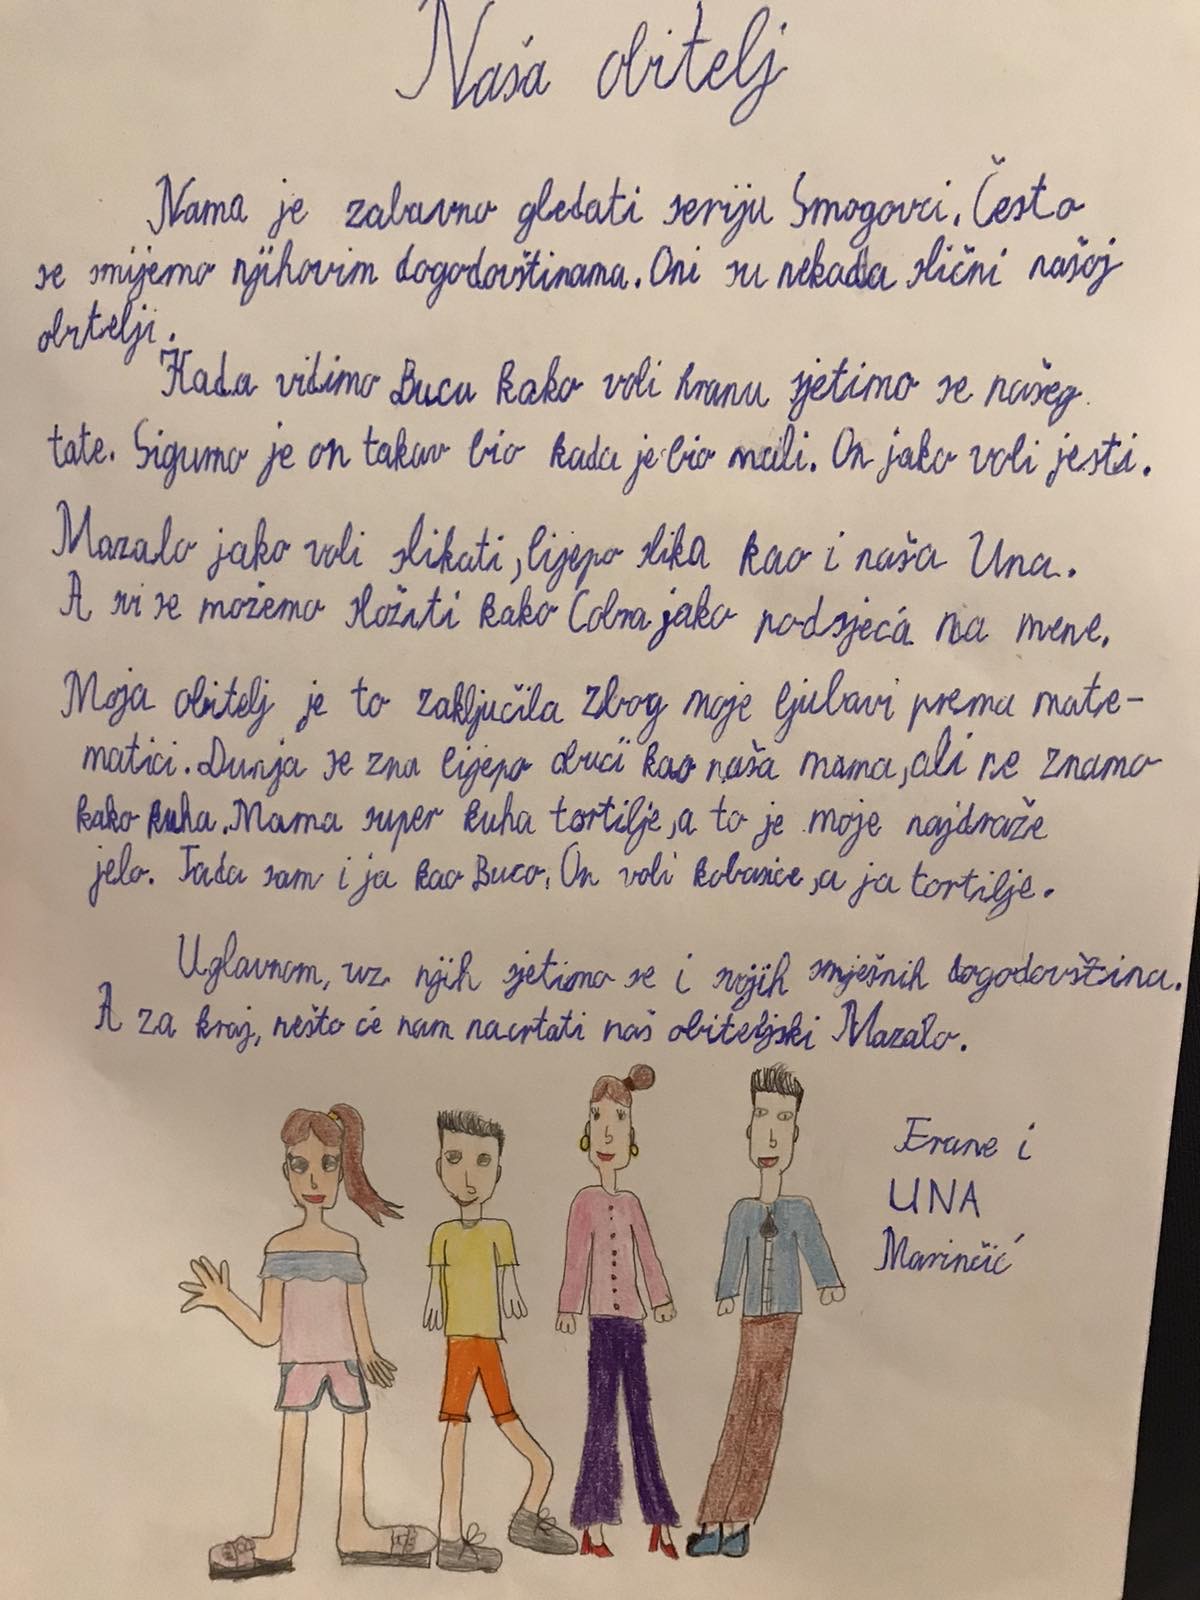 Naša obitelj
Nama je zabavno gledati seriju Smogovci. Često
se smijemo njihovim dogodovštinama. Oni su nekada slični našoj
obitelji.
Kada vidimo Bucu kako voli hranu sjetimo se našeg
tate. Sigurno je on takav bio kada je bio mali. On jako voli jesti.
Mazalo jako voli slikati, lijepo slika kao i naša Una.
A svi se možemo složiti kako Cobra jako podsjeća na mene.
Moja obitelj je to zaključila zbog moje ljubavi prema mate-
matici. Dunja se zna lijepo obući kao naša mama, ali ne znamo
kako kuha. Mama super kuha tortilje, a to je moje najdraže
jelo. Tada sam i ja kao Buco. On voli kobasice, a ja tortilje.
Uglavnom, uz njih sjetimo se i svojih smješnih dogodovština.
A za kraj, nešto će nam nacrtati naš obiteljski Mazalo.
Frane i
UNA
Marinčić